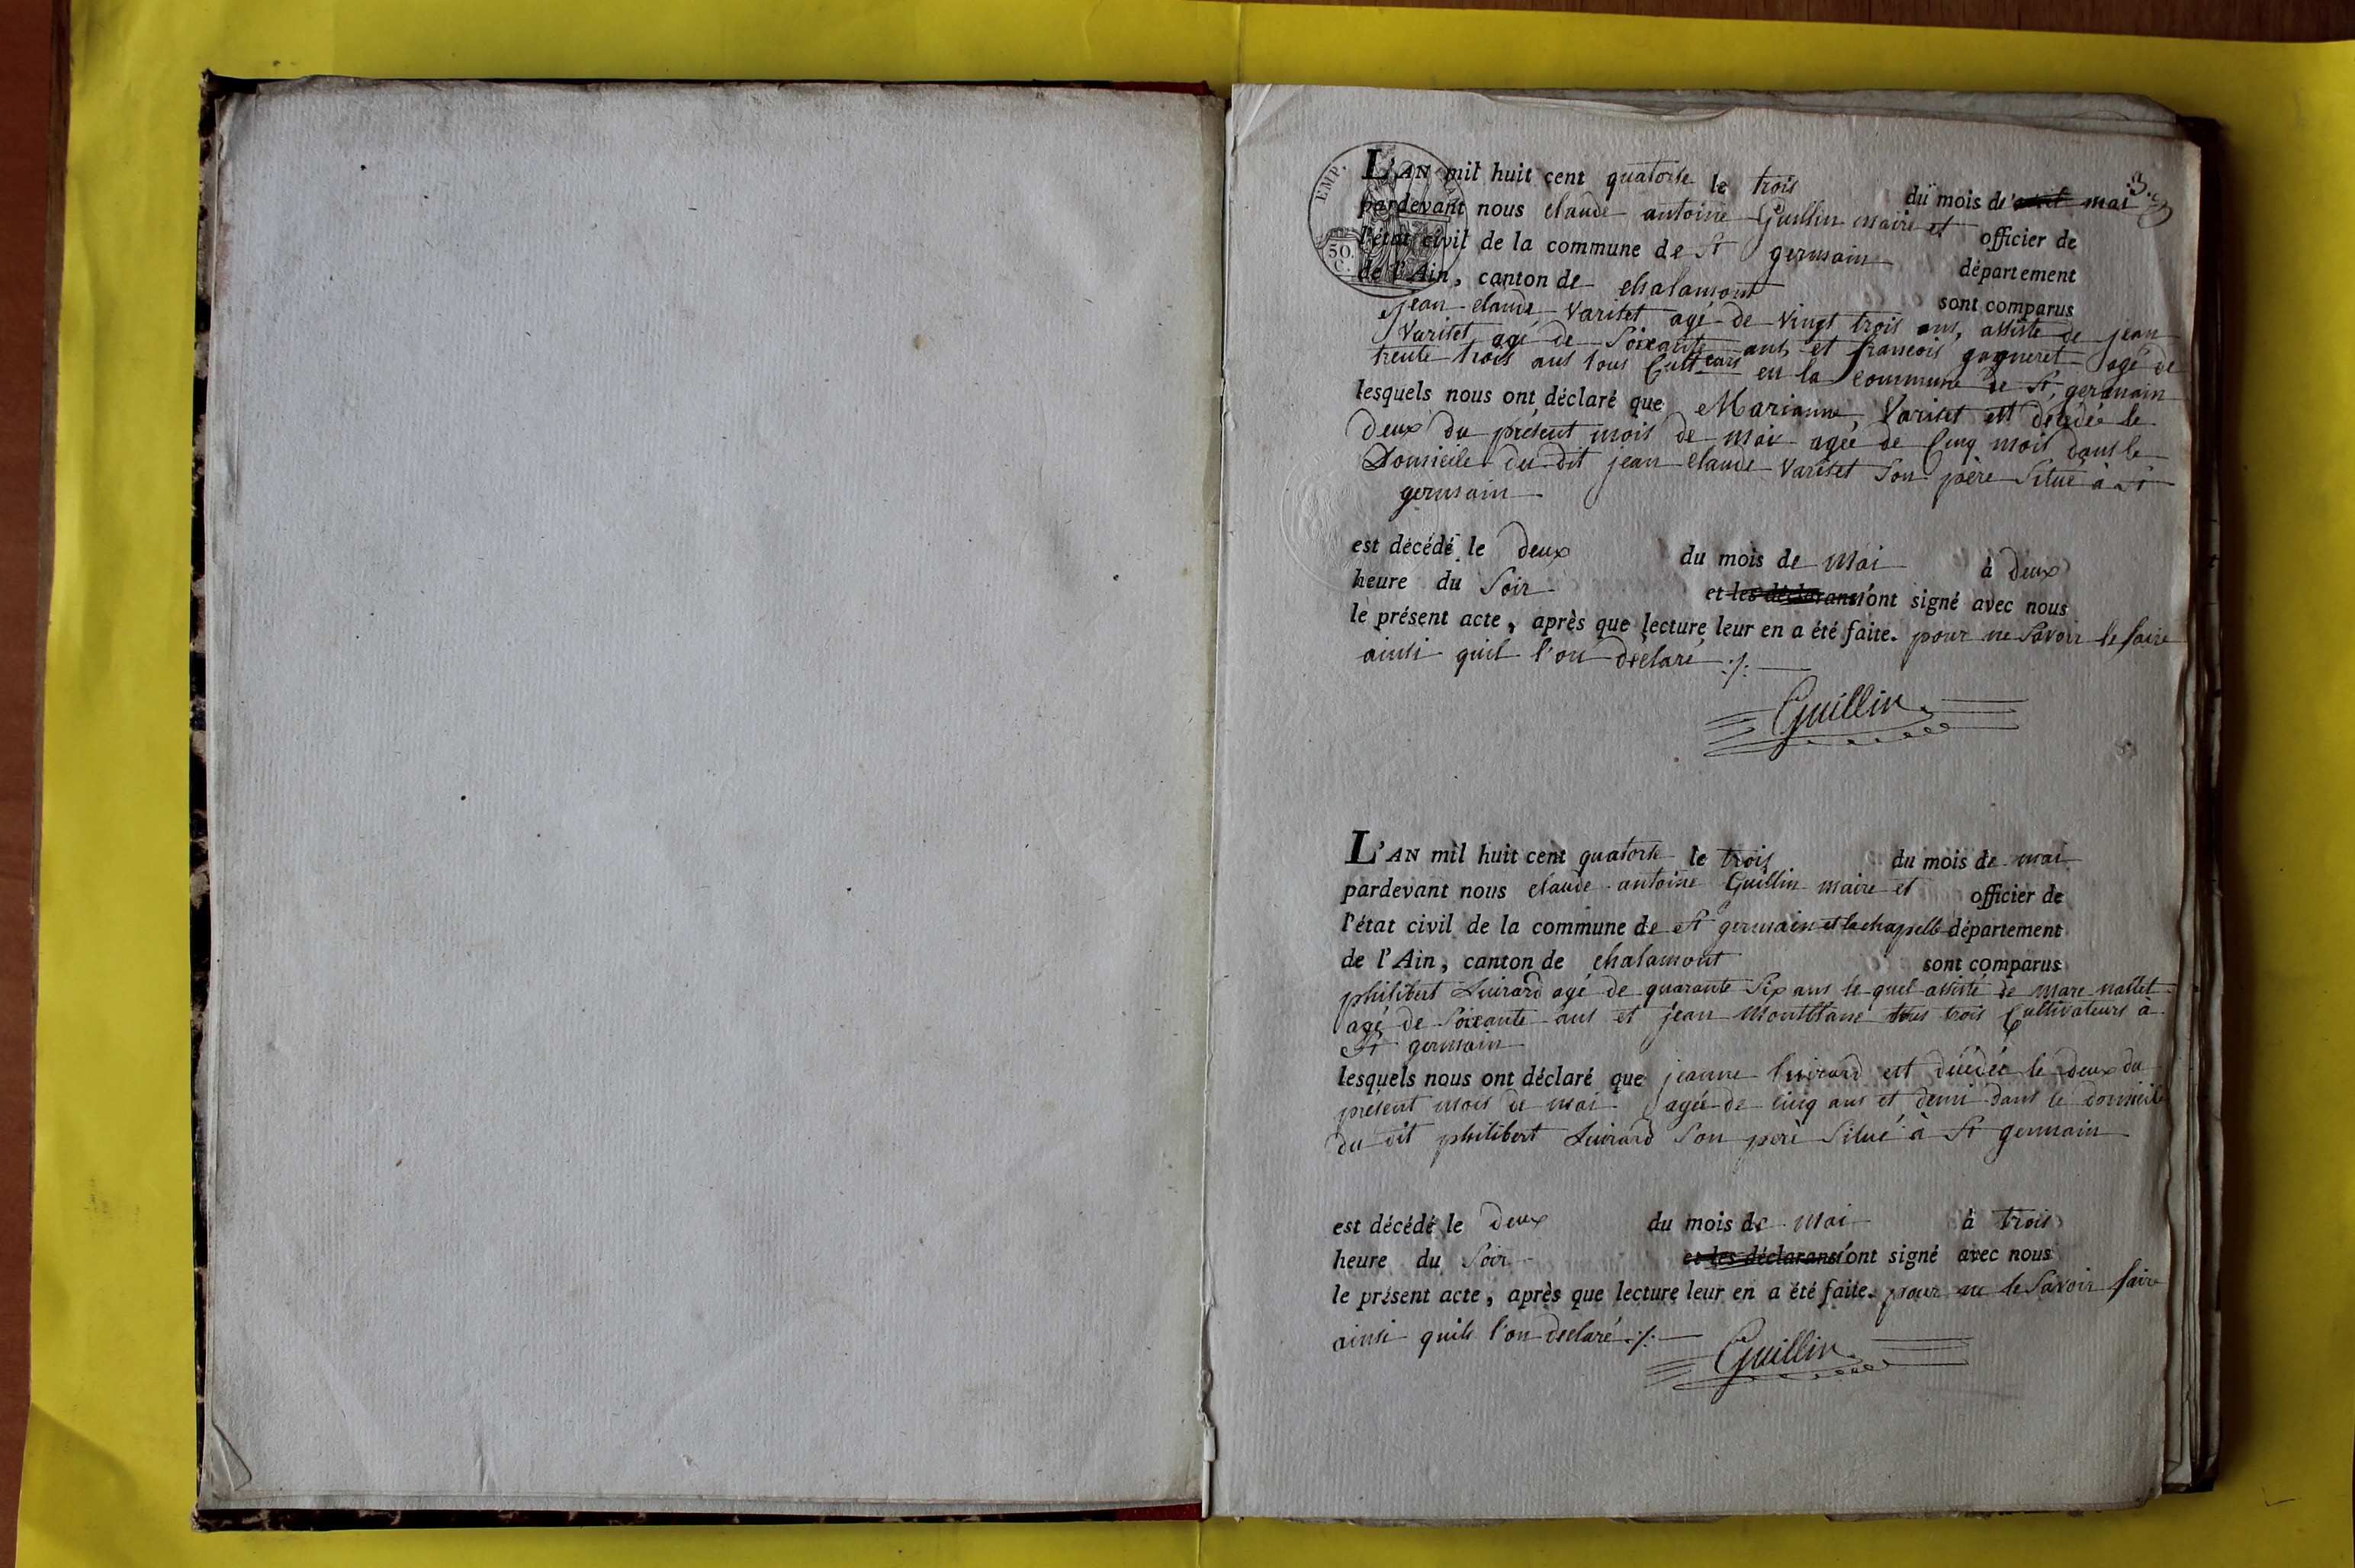 EMP.
50.
C.
L'AN mil huit cent quatorse le trois du mois de avril mai
.3.
pardevant nous claude antoine Guillin maire et officier de
l'état civil de la commune de St germain département
de l'Ain, canton de chalamont sont comparus
jean claude Varitet agé de vingt trois ans, assisté de jean
Varitet agé de Soixante ans et francois gagneret agé de
trente trois ans tous Cultteurs en la commune de St germain
lesquels nous ont déclaré que Marianne Varitet est décédée le
deux du présent mois de mai agée de Cinq mois dans le
Domicile du dit jean claude Varitet Son père Situé à St
germain
est décédé le deux du mois de mai à deux
heure du Soir et les déclarans n'ont signé avec nous
le présent acte, après que lecture leur en a été faite. pour ne Savoir le faire
ainsi quil l'on déclaré ./.
Guillin
L'AN mil huit cent quatorse le trois du mois de mai
pardevant nous claude antoine Guillin maire et officier de
l'état civil de la commune de St germain et la chapelle département
de l'Ain, canton de chalamont sont comparus
philibert Luirard agé de quarante Six ans le quel assisté de marc nallet
agé de Soixante ans et jean tous trois Cultivateurs à
St germain
lesquels nous ont déclaré que jeanne Luirard est décédée le deux du
présent mois de mai agée de cinq ans et demi dans le domicile
du dit philibert Luirard Son père Situé à St germain
est décédé le deux du mois de mai à trois
heure du Soir et les déclarans n'ont signé avec nous
le présent acte, après que lecture leur en a été faite. pour ne le Savoir faire
ainsi quils l'on déclaré ./.
Guillin